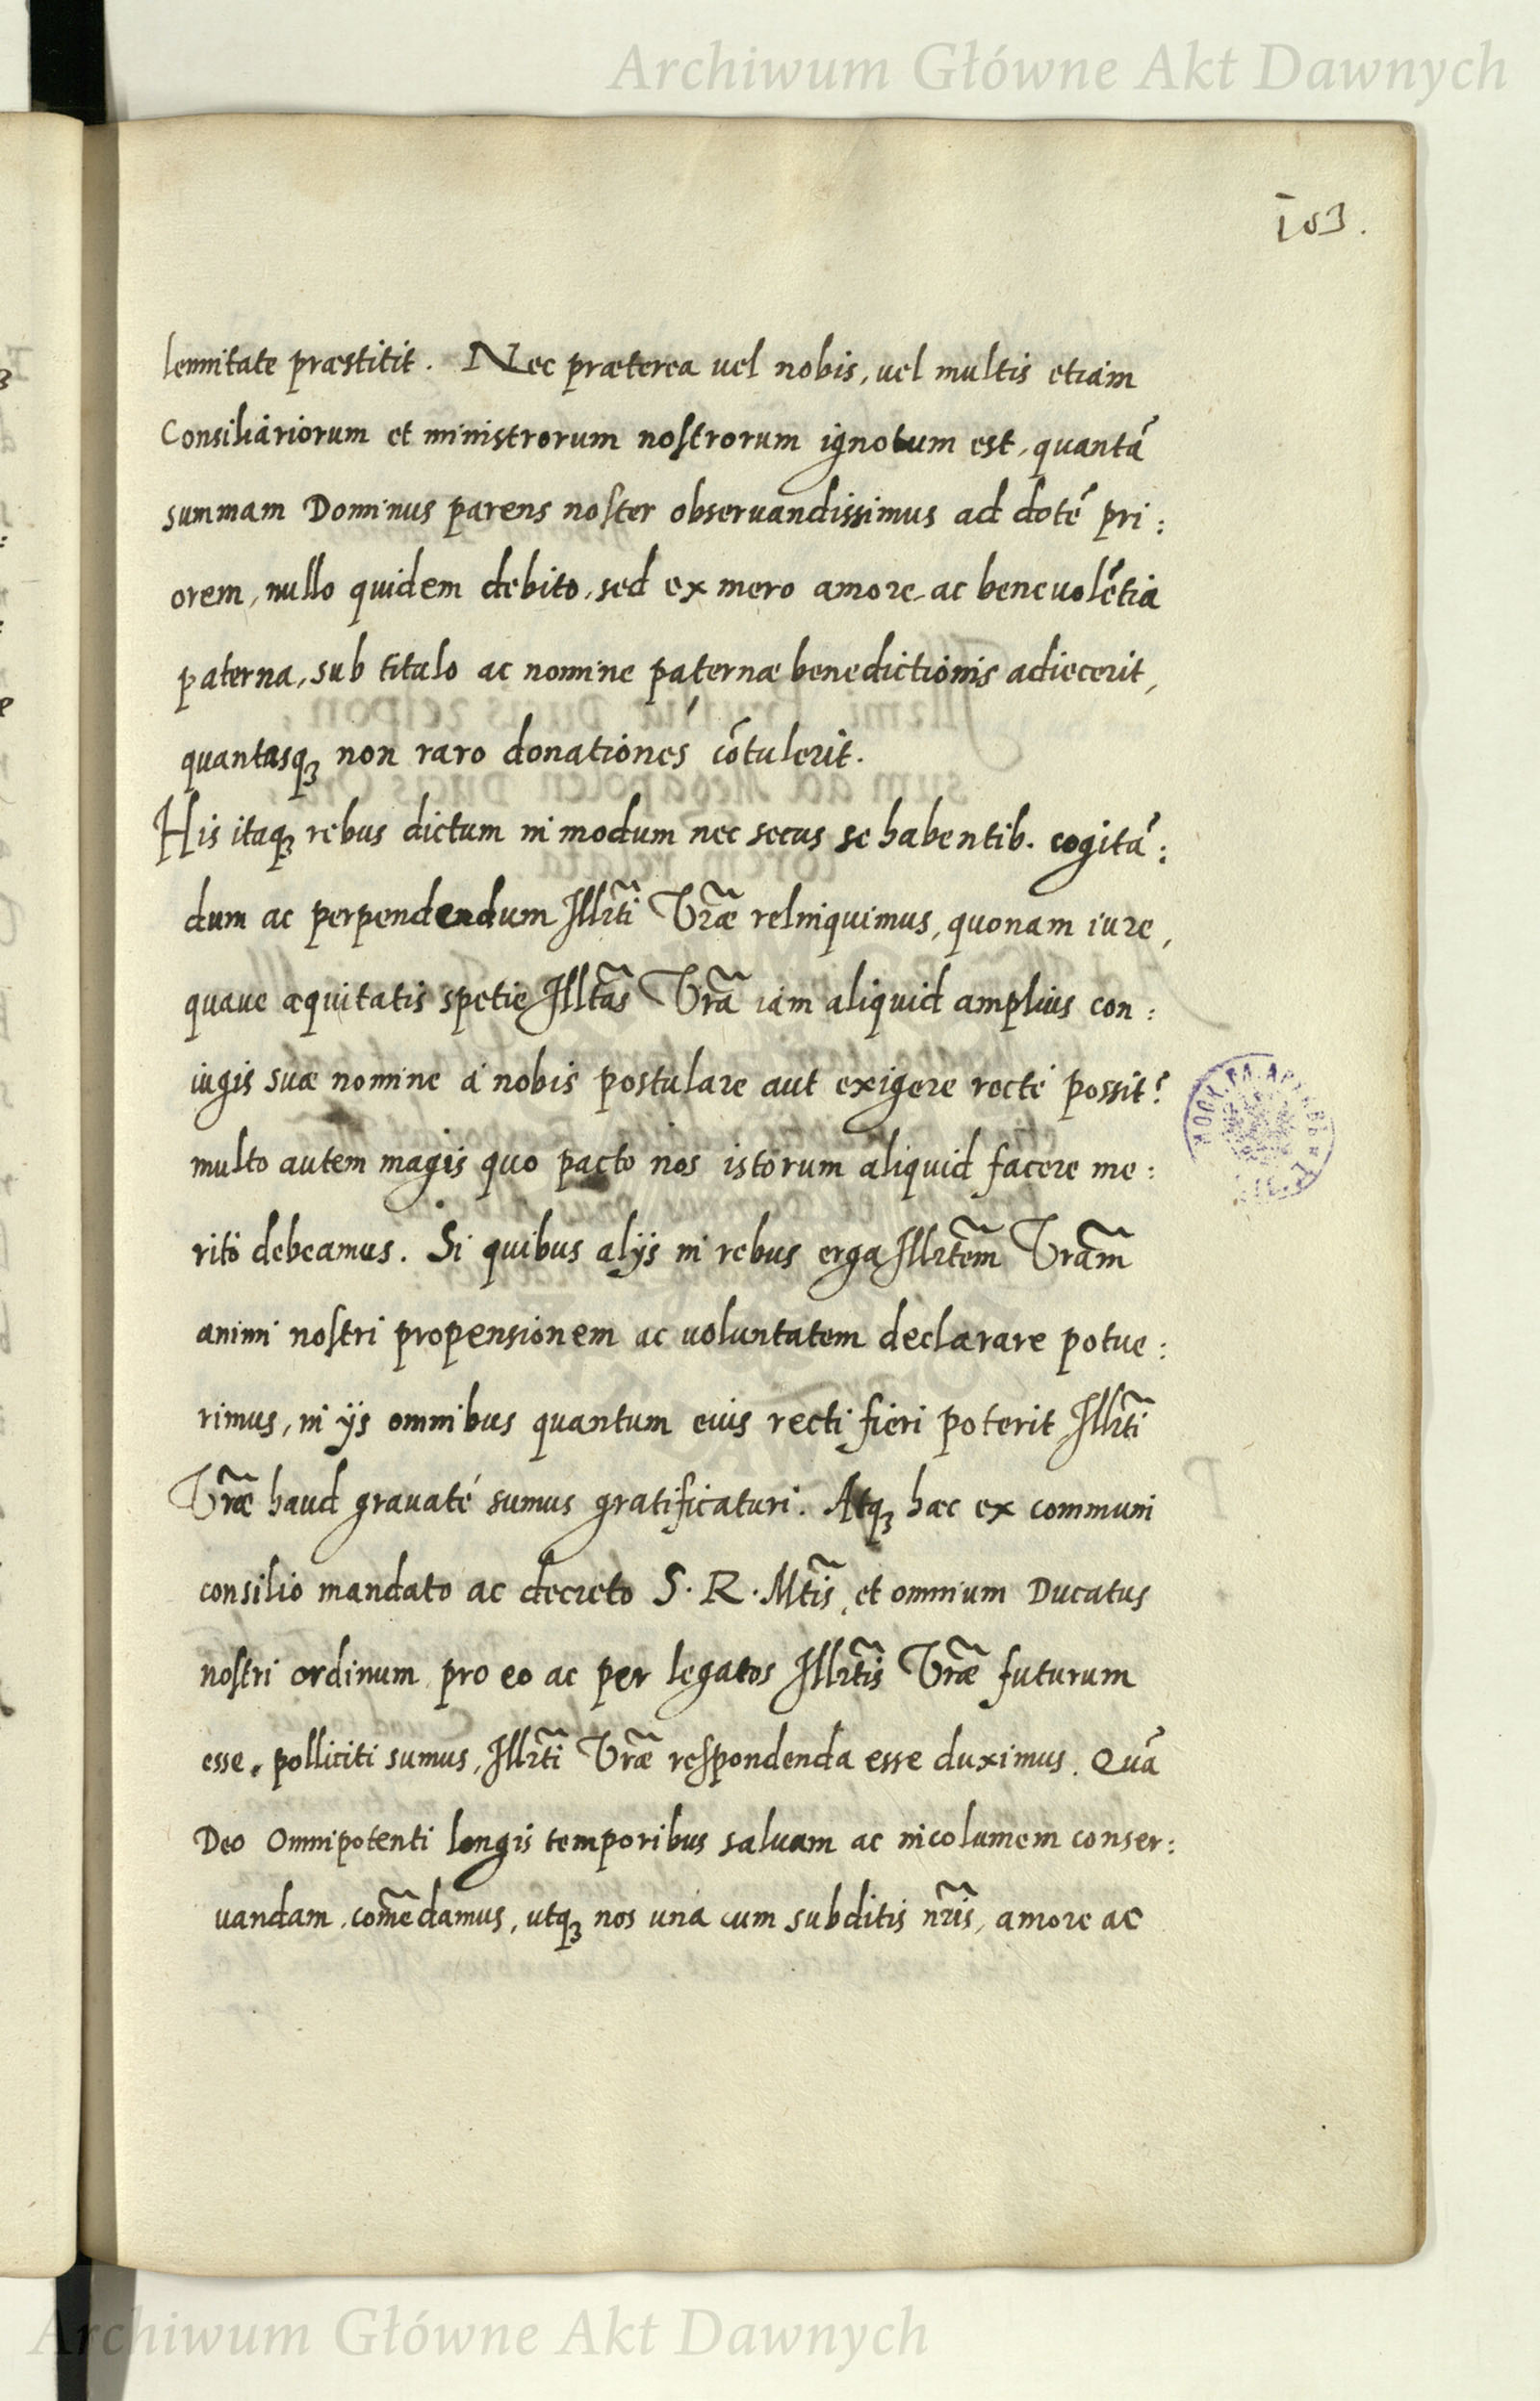 Archiwum Główne Akt Dawnych
103.
lennitate præstitit. Nec præterea uel nobis, uel multis etiam
Consiliariorum et ministrorum nostrorum ignotum est, quantã
summam Dominus parens noster obseruandissimus ad dotẽ pri:
orem, nullo quidem debito, sed ex mero amore ac beneuolẽtia
paterna, sub titulo ac nomine paternæ benedictionis adiecerit,
quantasq₃ non raro donationes cõtulerit.
His itaq₃ rebus dictum in modum nec secus se habentib. cogitã:
dum ac perpendendum Illr̃ti Vr̃æ relinquimus, quonam iure,
quaue æquitatis spetie Illtãs Vrã iam aliquid amplius con:
iugis suæ nomine á nobis postulare aut exigere recté possit?
multo autem magis quo pacto nos istorum aliquid facere me:
rito debeamus. Si quibus alijs in rebus erga Illrtẽm Vrãm
animi nostri propensionem ac uoluntatem declarare potue:
rimus, in ijs omnibus quantum eius recti fieri poterit Illr̃ti
Vrãe haud grauaté sumus gratificaturi. Atq₃ hæc ex communi
consilio mandato ac decreto S. R. Mtĩs, et omnium Ducatus
nostri ordinum pro eo ac per legatos Illrtĩs Vrãe futurum
esse, polliciti sumus, Illr̃ti Vrãe respondenda esse duximus. Quã
Deo Omnipotenti longis temporibus saluam ac incolumem conser:
uandam, com̃edamus, utq₃ nos una cum subditis nr̃is, amore ac
Archiwum Główne Akt Dawnych